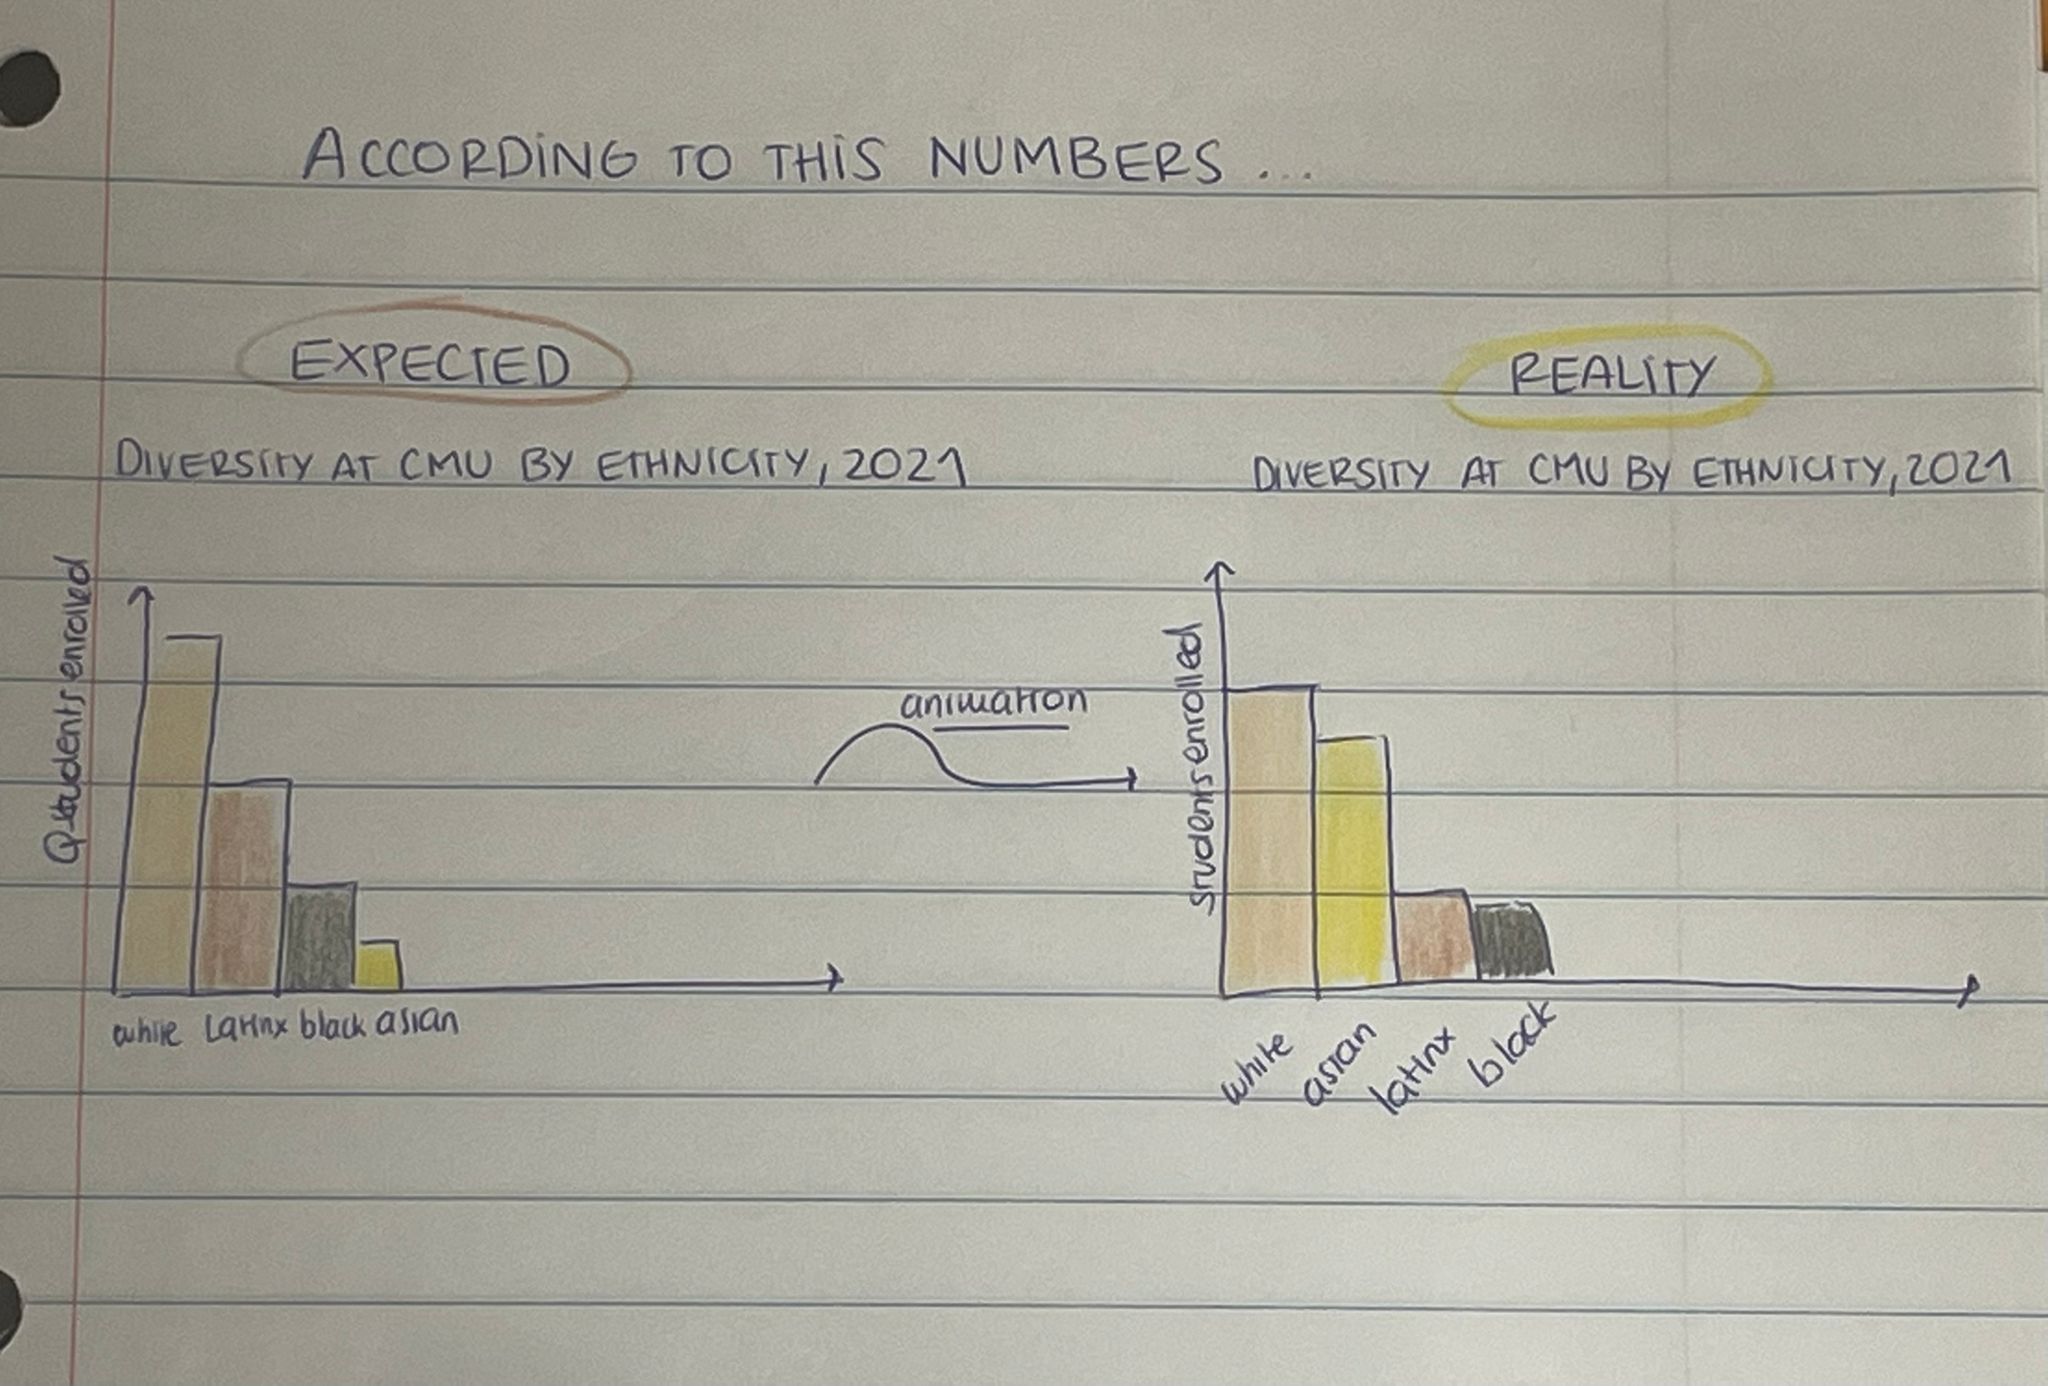 ACCORDING TO THIS NUMBERS ...
EXPECTED
DIVERSITY AT CMU BY ETHNICITY, 2021
students enrolled
white Latinx black asian
animation
REALITY
DIVERSITY AT CMU BY ETHNICITY, 2021
students enrolled
white
asian
latinx
black